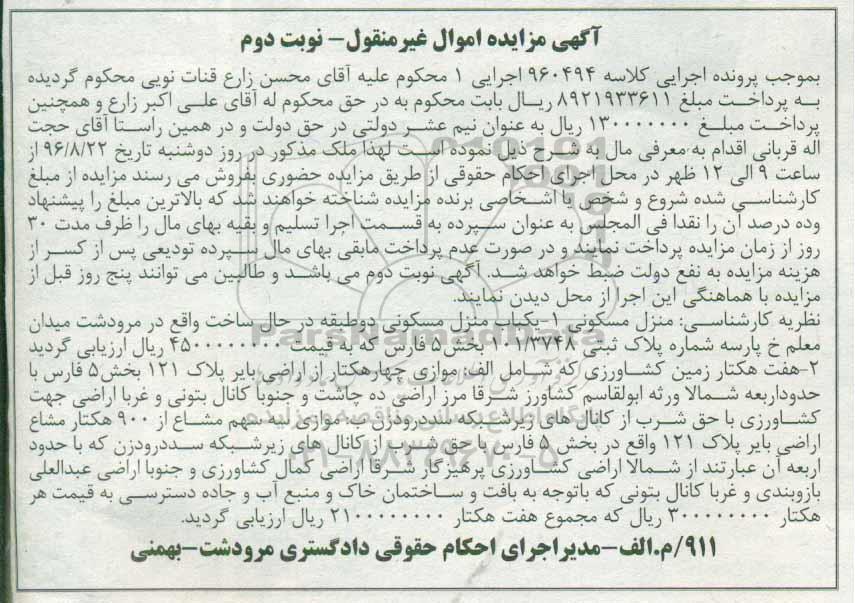 آگهی مزایده اموال غیرمنقول- نوبت دوم
بموجب پرونده اجرایی کلاسه ۹۶۰۴۹۴ اجرایی ۱ محکوم علیه آقای محسن زارع قنات نویی محکوم گردیده
به پرداخت مبلغ ۸۹۲۱۹۳۳۶۱۱ ریال بابت محکوم به در حق محکوم له آقای علی اکبر زارع و همچنین
پرداخت مبلغ ۱۳۰۰۰۰۰۰۰ ریال به عنوان نیم عشر دولتی در حق دولت و در همین راستا آقای حجت
اله قربانی اقدام به معرفی مال به شرح ذیل نموده است لهذا ملک مذکور در روز دوشنبه تاریخ ۹۶/۸/۲۲ از
ساعت ۹ الی ۱۲ ظهر در محل اجرای احکام حقوقی از طریق مزایده حضوری بفروش می رسند مزایده از مبلغ
کارشناسی شده شروع و شخص یا اشخاصی برنده مزایده شناخته خواهند شد که بالاترین مبلغ را پیشنهاد
وده درصد آن را نقدا فی المجلس به عنوان سپرده به قسمت اجرا تسلیم و بقیه بهای مال را ظرف مدت ۳۰
روز از زمان مزایده پرداخت نمایند و در صورت عدم پرداخت مابقی بهای مال سپرده تودیعی پس از کسر از
هزینه مزایده به نفع دولت ضبط خواهد شد. آگهی نوبت دوم می باشد و طالبین می توانند پنج روز قبل از
مزایده با هماهنگی این اجرا از محل دیدن نمایند.
نظریه کارشناسی: منزل مسکونی ۱-یکباب منزل مسکونی دوطبقه در حال ساخت واقع در مرودشت میدان
معلم خ پارسه شماره پلاک ثبتی ۱۰۱/۳۷۴۸ بخش ۵ فارس که به قیمت ۴۵۰۰۰۰۰۰۰۰ ریال ارزیابی گردید
۲-هفت هکتار زمین کشاورزی که شامل الف: موازی چهارهکتار از اراضی بایر پلاک ۱۲۱ بخش۵ فارس با
حدوداربعه شمالا ورثه ابولقاسم کشاورز شرقا مرز اراضی ده چاشت و جنوبا کانال بتونی و غربا اراضی جهت
کشاورزی با حق شرب از کانال های زیرشبکه سددرودزن ب: موازی سه سهم مشاع از ۹۰۰ هکتار مشاع
اراضی بایر پلاک ۱۲۱ واقع در بخش ۵ فارس با حق شرب از کانال های زیرشبکه سددرودزن که با حدود
اربعه آن عبارتند از شمالا اراضی کشاورزی پرهیزگار شرقا اراضی کمال کشاورزی و جنوبا اراضی عبدالعلی
بازوبندی و غربا کانال بتونی که باتوجه به بافت و ساختمان خاک و منبع آب و جاده دسترسی به قیمت هر
هکتار ۳۰۰۰۰۰۰۰۰ ریال که مجموع هفت هکتار ۲۱۰۰۰۰۰۰۰۰ ریال ارزیابی گردید.
۹۱۱/م.الف-مدیراجرای احکام حقوقی دادگستری مرودشت-بهمنی
ParsNamadData
۰۲۱-۸۸۳۴۹۶۷۰-۵